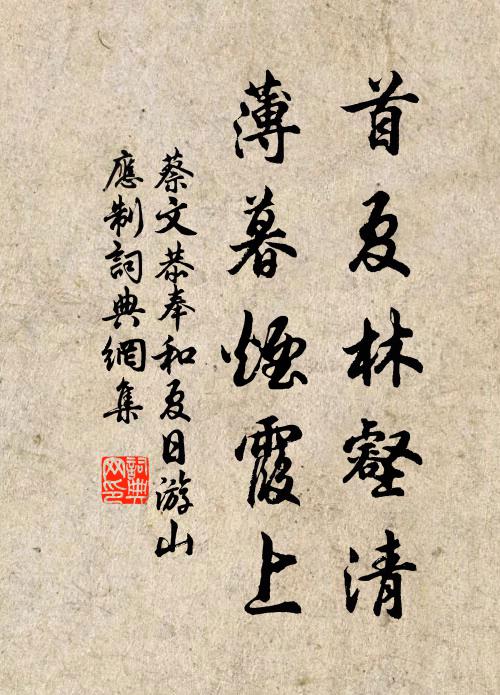 首夏林壑清
薄暮煙霞上
蔡文恭奉和夏日游山
應制詞典網集
詞典
网印